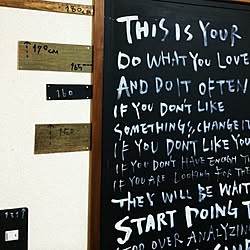 180cm
170cm
165cm
160
150
THIS IS YOUR
DO WHAT YOU LOVE
AND DO IT OFTEN
IF YOU DON'T LIKE
SOMETHING, CHANGE IT
IF YOU DON'T LIKE YOUR
IF YOU DON'T HAVE ENOUGH TI
IF YOU ARE LOOKING FOR THE
THEY WILL BE WAIT
START DOING T
STOP OVER ANALYZI